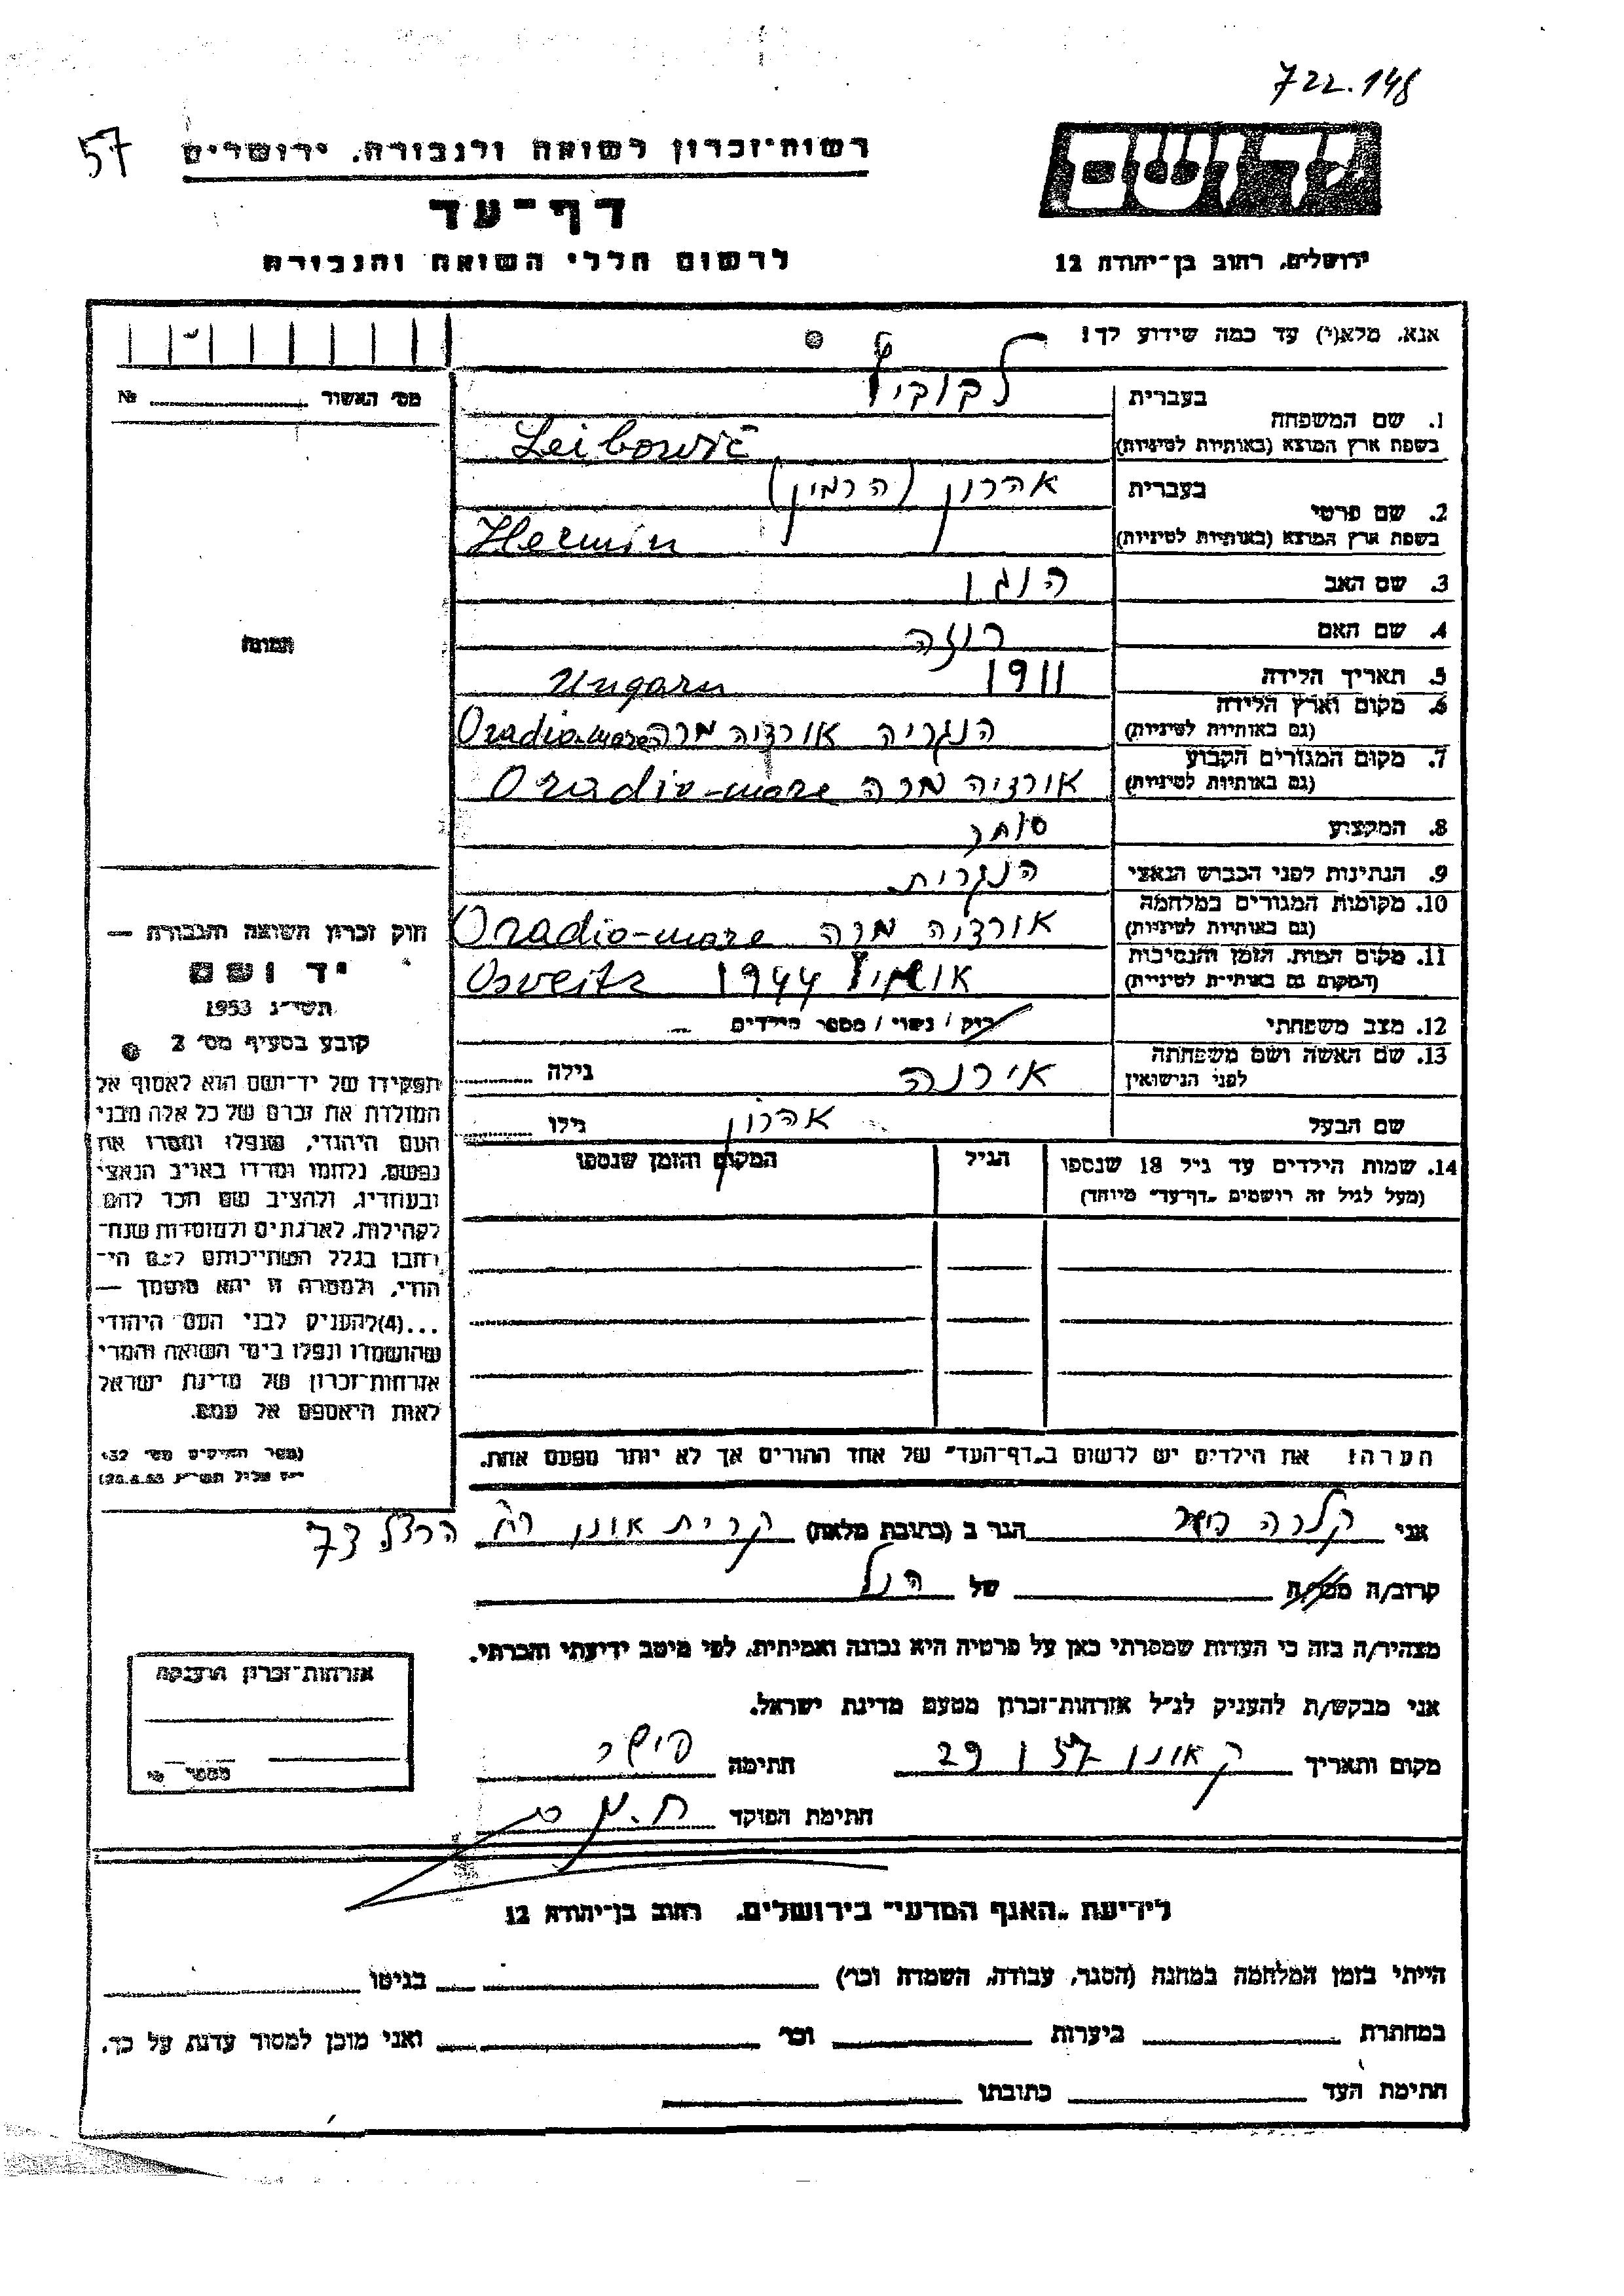 722.148
57
רשות-זכרון לשואה ולגבורה, ירושלים
דף-עד
לרשום חללי השואה והגבורה
ידושם
ירושלים, רחוב בן-יהודה 12
אנא, מלא(י) עד כמה שידוע לך!
מס' האשור № 
1. שם המשפחה
בעברית
בשפת ארץ המוצא (באותיות לטיניות)
Leibovič
2. שם פרטי
בעברית אהרון (הרמין)
בשפת ארץ המוצא (באותיות לטיניות) Hermin
3. שם האב הוגו
4. שם האם רוזה
5. תאריך הלידה 1911 Ungarn
6. מקום וארץ הלידה
(גם באותיות לטיניות) הנגריה אורדיה מרה Oradia-mare
7. מקום המגורים הקבוע
(גם באותיות לטיניות) אורדיה מרה Oradia-mare
8. המקצוע סוחר
9. הנתינות לפני הכבוש הנאצי הנגרית
10. מקומות המגורים במלחמה
(גם באותיות לטיניות) אורדיה מרה Oradia-mare
11. מקום המות, הזמן והנסיבות
(המקום גם באותיות לטיניות) 1944 Osveitz
12. מצב משפחתי רוק / נשוי / מספר הילדים
13. שם האשה ושם משפחתה
לפני הנישואין אירנה גילה
שם הבעל אהרון גילו
14. שמות הילדים עד גיל 18 שנספו
(מעל לגיל זה רושמים "דף-עד" מיוחד)
הגיל
המקום והזמן שנספו
הערה! את הילדים יש לרשום ב"דף-העד" של אחד ההורים אך לא יותר מפעם אחת.
תמונה
חוק זכרון השואה והגבורה —
יד ושם
תשי"ג 1953
קובע בסעיף מס' 2
תפקידו של יד-ושם הוא לאסוף אל
המולדת את זכרם של כל אלה מבני
העם היהודי, שנפלו ומסרו את
נפשם, נלחמו ומרדו באויב הנאצי
ובעוזריו, ולהציב שם וזכר להם
לקהילות, לארגונים ולמוסדות שנח-
רחבו בגלל השתייכותם לעם הי-
הודי, ולמטרה זו יהא מוסמך —
...(4)להעניק לבני העם היהודי
שהושמדו ונפלו בימי השואה והמרי
אזרחות-זכרון של מדינת ישראל
לאות היאספם אל עמם.
(ספר החוקים מס' 132
אני קלרה פישר הגר ב (כתובת מלאה) קרית אונו רח' הרצל 73
קרוב/ה מכר/ה של הנ"ל
מצהיר/ה בזה כי העדות שמסרתי כאן על פרטיה היא נכונה ואמיתית, לפי מיטב ידיעתי והכרתי.
אני מבקש/ת להעניק לנ"ל אזרחות-זכרון מטעם מדינת ישראל.
מקום ותאריך ק אונו 29 1 57 חתימה פישר
חתימת הפוקד
אזרחות-זכרון הוענקה
מספר
לידיעת "האגף המדעי" בירושלים, רחוב בן-יהודה 12
הייתי בזמן המלחמה במחנה (הסגר, עבודה, השמדה וכו') בגיטו
במחתרת ביערות וכו' ואני מוכן למסור עדות על כך.
חתימת העד כתובתו